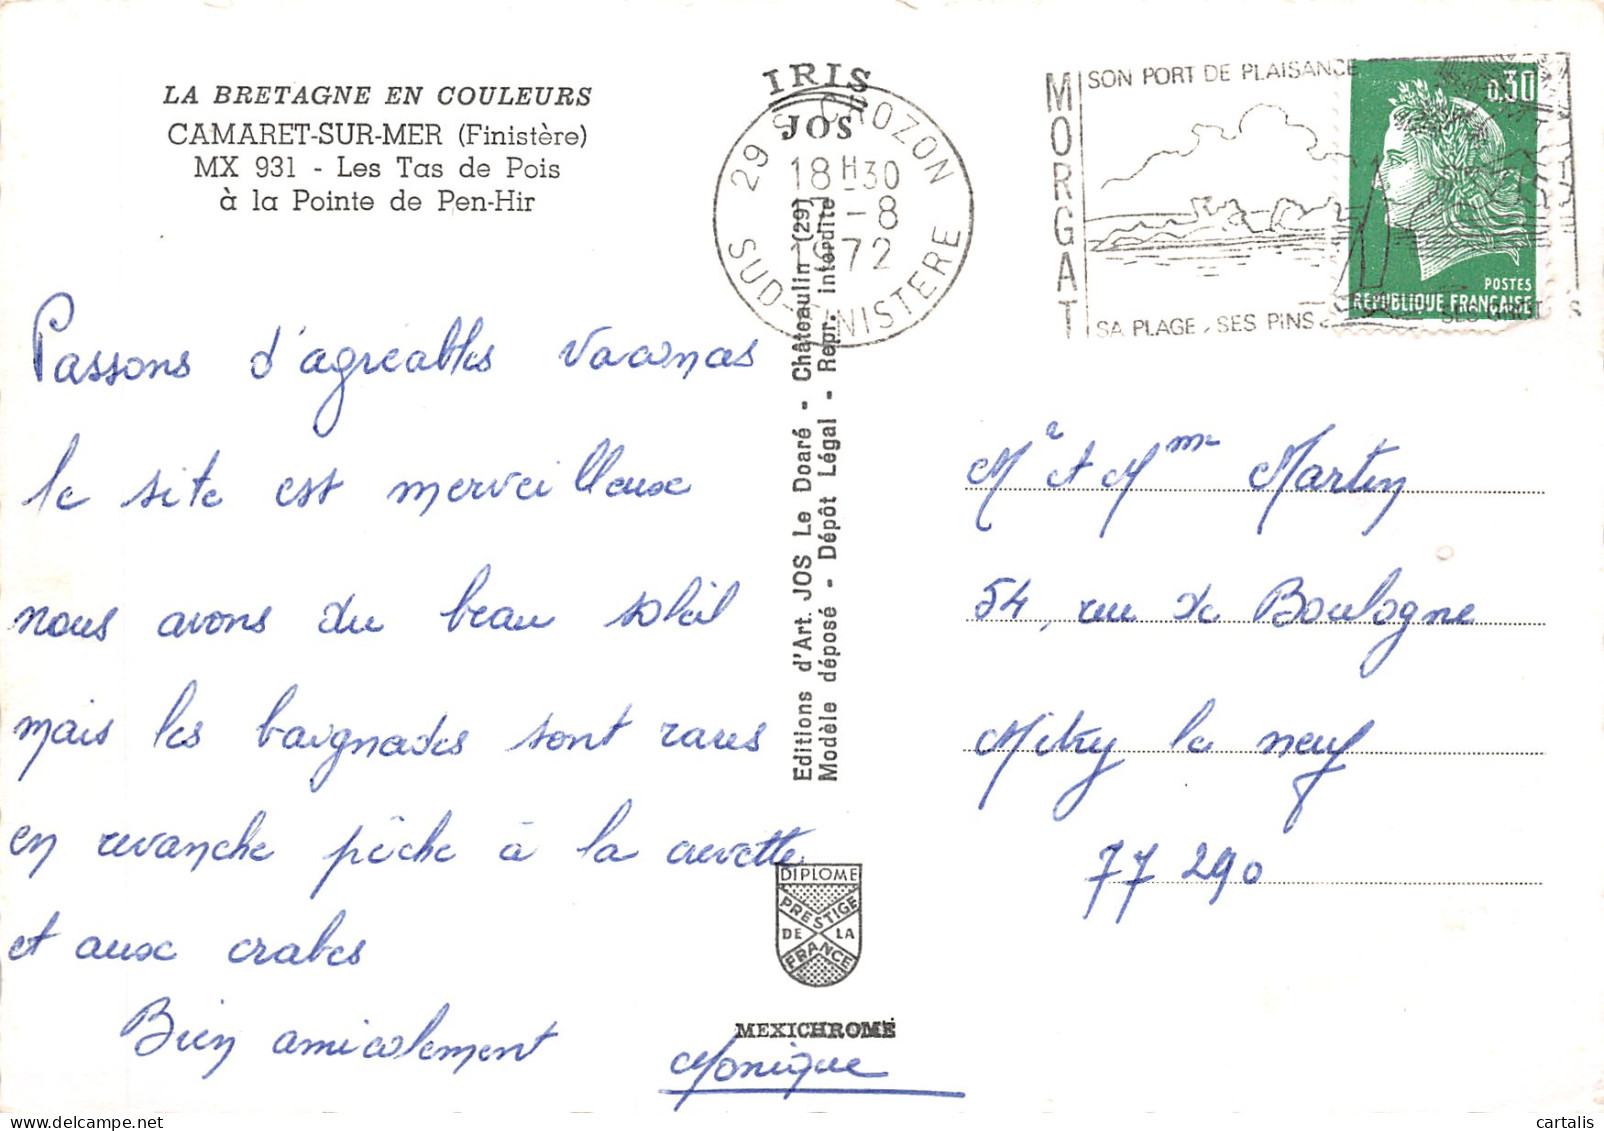 LA BRETAGNE EN COULEURS
CAMARET-SUR-MER (Finistère)
MX 931 - Les Tas de Pois
à la Pointe de Pen-Hir
Passons d'agréables vacances
le site est merveilleux
nous avons du beau soleil
mais les baignades sont rares
en revanche pêche à la crevette
et aux crabes
Bien amicalement
Monique
IRIS
JOS
29 S CROZON
18H30
-8
1972
SUD-FINISTERE
Editions d'Art. JOS Le Doaré - Châteaulin (29)
Modèle déposé - Dépôt Légal - Repr. interdite
DIPLOME
PRESTIGE
DE LA
FRANCE
MEXICHROME
MORGAT
SON PORT DE PLAISANCE
SA PLAGE, SES PINS,
SES
0,30
POSTES
REPUBLIQUE FRANÇAISE
Mr et Mme Martin
54, rue de Boulogne
Mitry le neuf
77 290
cartalis